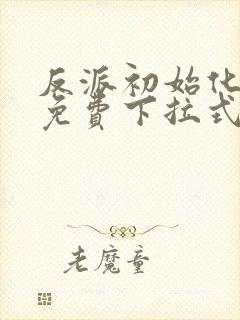 反派初始化
免費下拉式
老魔童